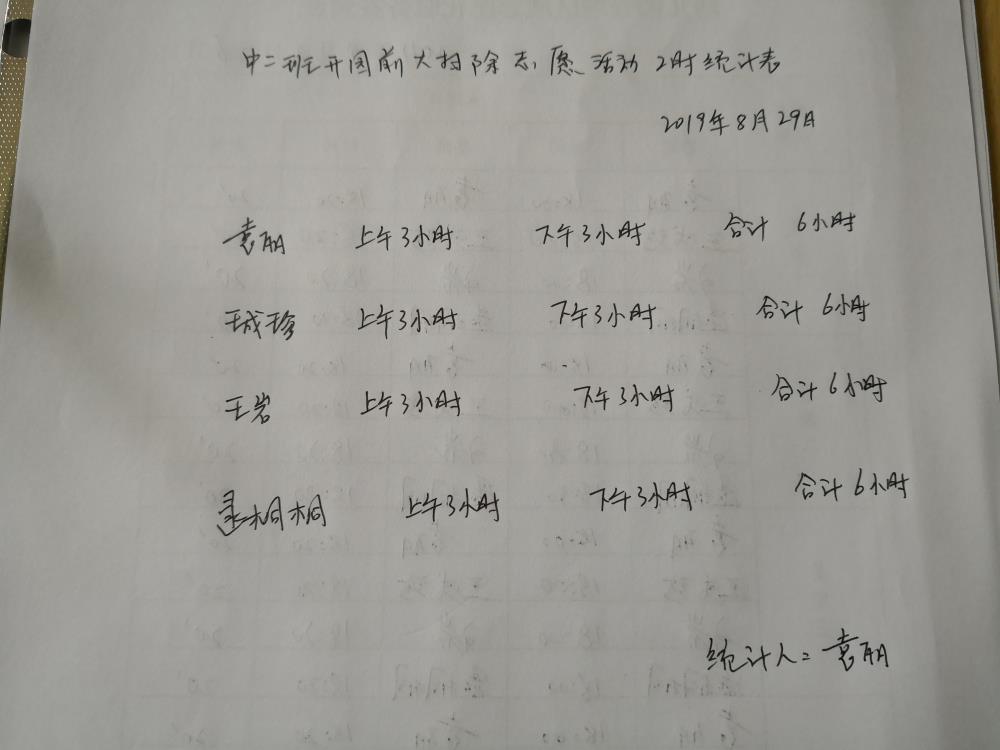 中二班开园前大扫除志愿活动工时统计表
2019年8月29日
袁丽 上午3小时 下午3小时 合计 6小时
王成珍 上午3小时 下午3小时 合计 6小时
王岩 上午3小时 下午3小时 合计 6小时
桐桐 上午3小时 下午3小时 合计 6小时
统计人：袁丽